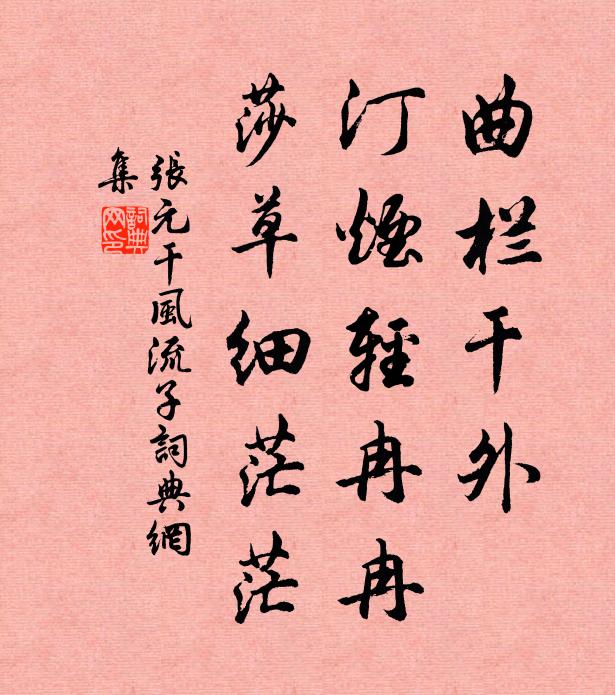 曲栏干外
汀煙輕冉冉
莎草細茫茫
張元干風流子詞典網
集
詞典
网印